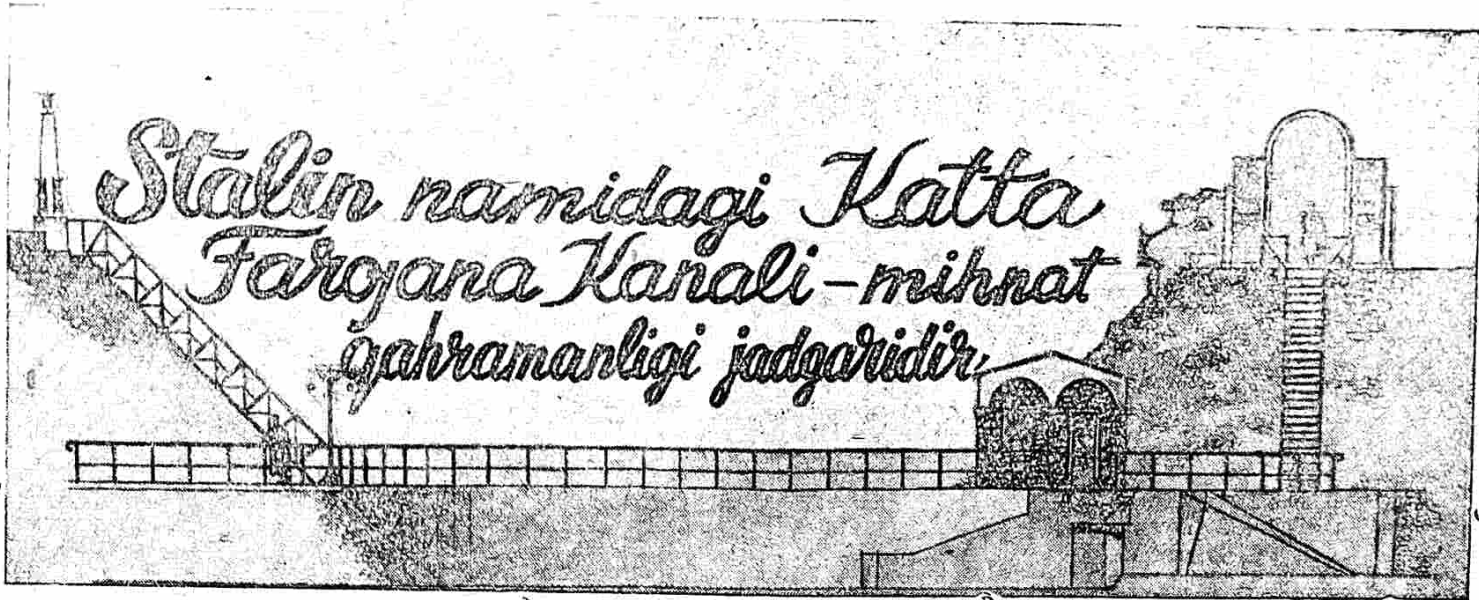 Stalin namidagi Katta
Farƣana Kanali – mihnat
qahramanligi jadgaridir